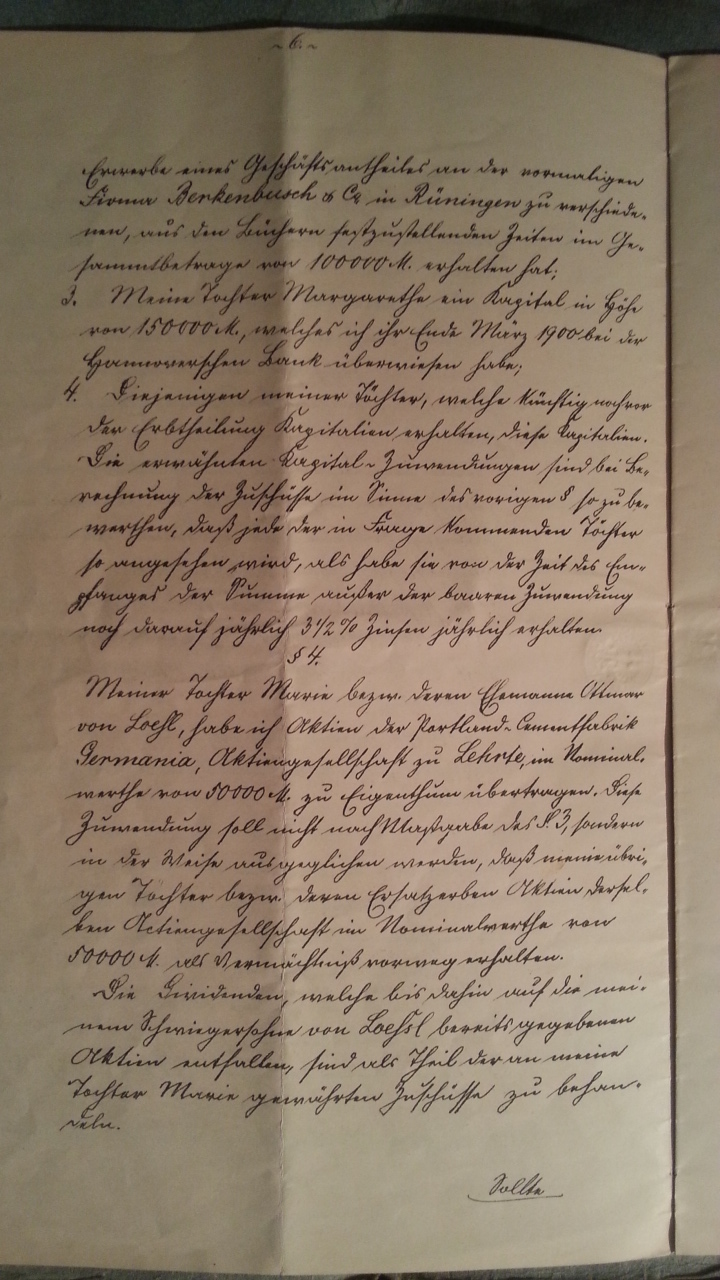 ~ 6. ~
Erwerbe eines Geschäftsantheiles an der vormaligen
Firma Berkenbusch & Co in Rüningen zu verschiede-
nen, aus den Büchern festzustellenden Zeiten im Ge-
sammtbetrage von 100000 M. erhalten hat;
3. Meine Tochter Margarethe ein Kapital in Höhe
von 150000 M., welches ich ihr Ende März 1900 bei der
Hannoverschen Bank überwiesen habe;
4. Diejenigen meiner Töchter, welche künftig noch vor
der Erbtheilung Kapitalien erhalten, diese Kapitalien.
Die erwähnten Kapital-Zuwendungen sind bei Be-
rechnung der Zuschüsse im Sinne des vorigen § so zu be-
werthen, daß jede der in Frage kommenden Töchter
so angesehen wird, als habe sie von der Zeit des Em-
pfanges der Summe außer der baaren Zuwendung
noch darauf jährlich 3 1/2 % Zinsen jährlich erhalten.
§ 4.
Meiner Tochter Marie bezw. deren Ehemanne Ottmar
von Loessl, habe ich Aktien der Portland-Cementfabrik
Germania, Aktiengesellschaft zu Lehrte, im Nominal-
werthe von 50000 M. zu Eigenthum übertragen. Diese
Zuwendung soll nicht nach Maßgabe des §. 3, sondern
in der Weise ausgeglichen werden, daß meine übri-
gen Töchter bezw. deren Ersatzerben Aktien dersel-
ben Actiengesellschaft im Nominalwerthe von
50000 M. als Vermächtniß vorweg erhalten.
Die Dividenden, welche bis dahin auf die mei-
nem Schwiegersohne von Loessl bereits gegebenen
Aktien entfallen, sind als Theil der an meine
Tochter Marie gewährten Zuschüsse zu behan-
deln.
Sollte